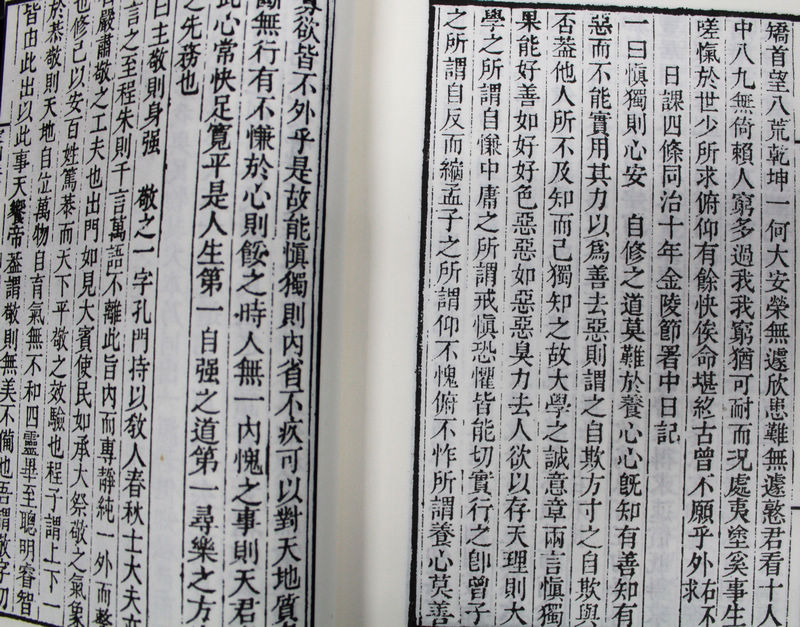 矯首望八荒乾坤一何大安榮無遽欣患難無遽憝君看十人
中八九無倚賴人窮多過我我窮猶可耐而況處夷塗奚事生
嗟愾於世少所求俯仰有餘快俟命堪終古曾不願乎外右不求
日課四條同治十年金陵節署中日記
一曰愼獨則心安 自修之道莫難於養心心旣知有善知有
惡而不能實用其力以爲善去惡則謂之自欺方寸之自欺與
否葢他人所不及知而己獨知之故大學之誠意章兩言愼獨
果能好善如好好色惡惡如惡惡臭力去人欲以存天理則大
學之所謂自慊中庸之所謂戒愼恐懼皆能切實行之卽曾子
之所謂自反而縮孟子之所謂仰不愧俯不怍所謂養心莫善
寡欲皆不外乎是故能愼獨則內省不疚可以對天地質
斷無行有不慊於心則餒之時人無一內愧之事則天君
此心常快足寬平是人生第一自强之道第一尋樂之方
之先務也
曰主敬則身强 敬之一字孔門持以敎人春秋士大夫亦
言之至程朱則千言萬語不離此旨內而專靜純一外而整
齊嚴肅敬之工夫也出門如見大賓使民如承大祭敬之氣象
也修己以安百姓篤恭而天下平敬之效驗也程子謂上下一
於恭敬則天地自位萬物自育氣無不和四靈畢至聰明睿智
皆由此出以此事天饗帝葢謂敬則無美不備也吾謂敬字切